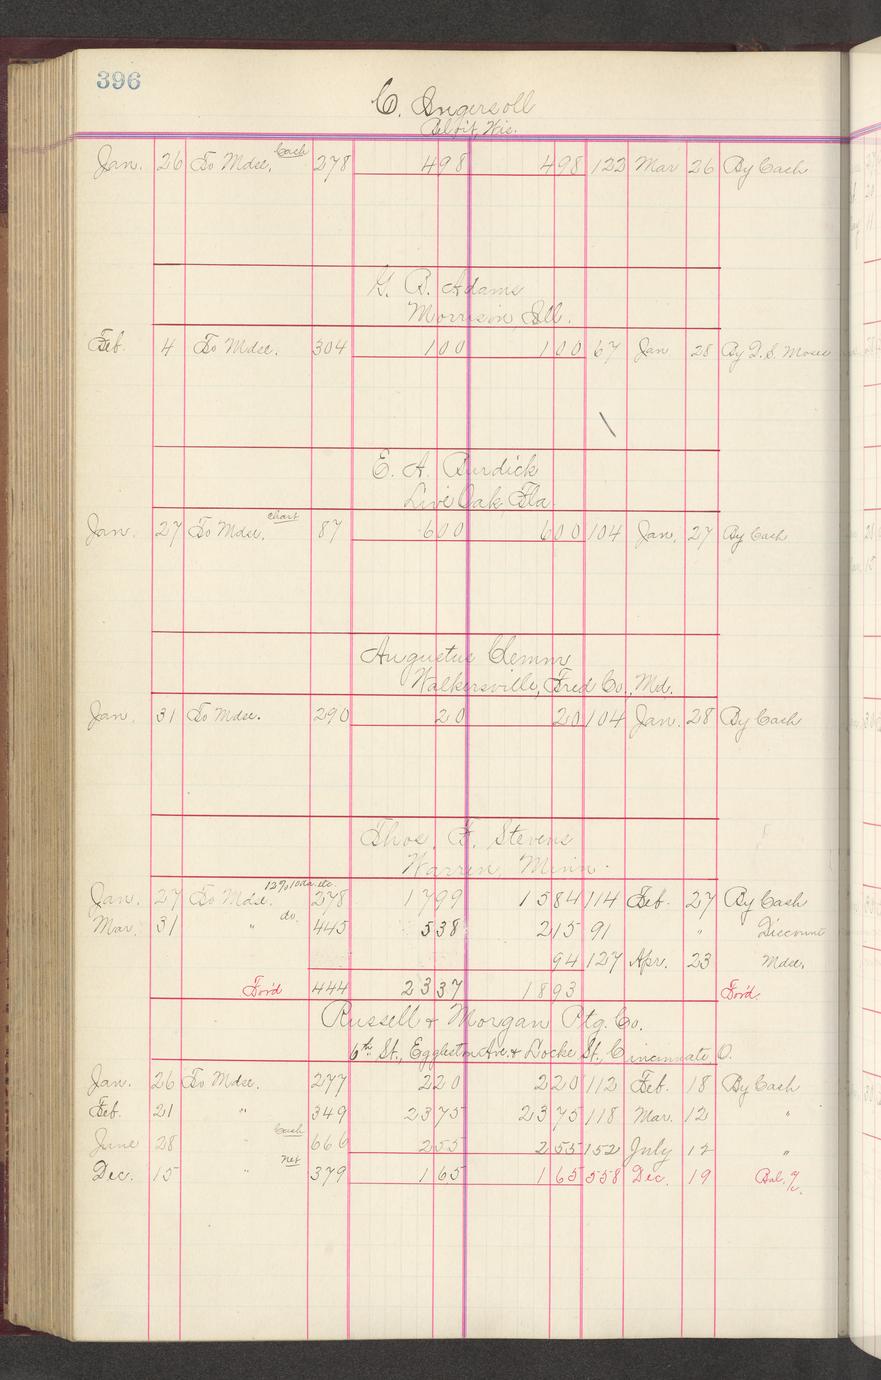 396
C. Ingersoll
Beloit, Wis.
Jan. 26 To Mdse, Cash 278 4 98 4 98 122 Mar 26 By Cash
G. B. Adams
Morrison Ill.
Feb. 4 To Mdse. 304 1 00 1 00 67 Jan 28 By T. S. Moses
E. A. Burdick
Live Oak Fla
Jan. 27 To Mdse. chart 87 6 00 6 00 104 Jan. 27 By Cash
Augustus Clemm
Walkersville, Fred Co., Md.
Jan. 31 To Mdse. 290 20 20 104 Jan. 28 By Cash
Thos. F. Stevens
Warren, Minn.
Jan. 27 To Mdse. 278 17 99 15 84 114 Feb. 27 By Cash
Mar. 31 " do 445 5 38 2 15 91 " Discount
94 127 Apr. 23 Mdse.
For'd 444 23 37 18 93 For'd.
Russell & Morgan Ptg. Co.
6th St., Eggleston Ave. & Locke St., Cincinnate, O.
Jan. 26 To Mdse. 277 2 20 2 20 112 Feb. 18 By Cash
Feb. 21 " 349 23 75 23 75 118 Mar. 12 "
June 28 " Cash 666 2 55 2 55 152 July 12 "
Dec. 15 " net 379 1 65 1 65 558 Dec. 19 Bal. %